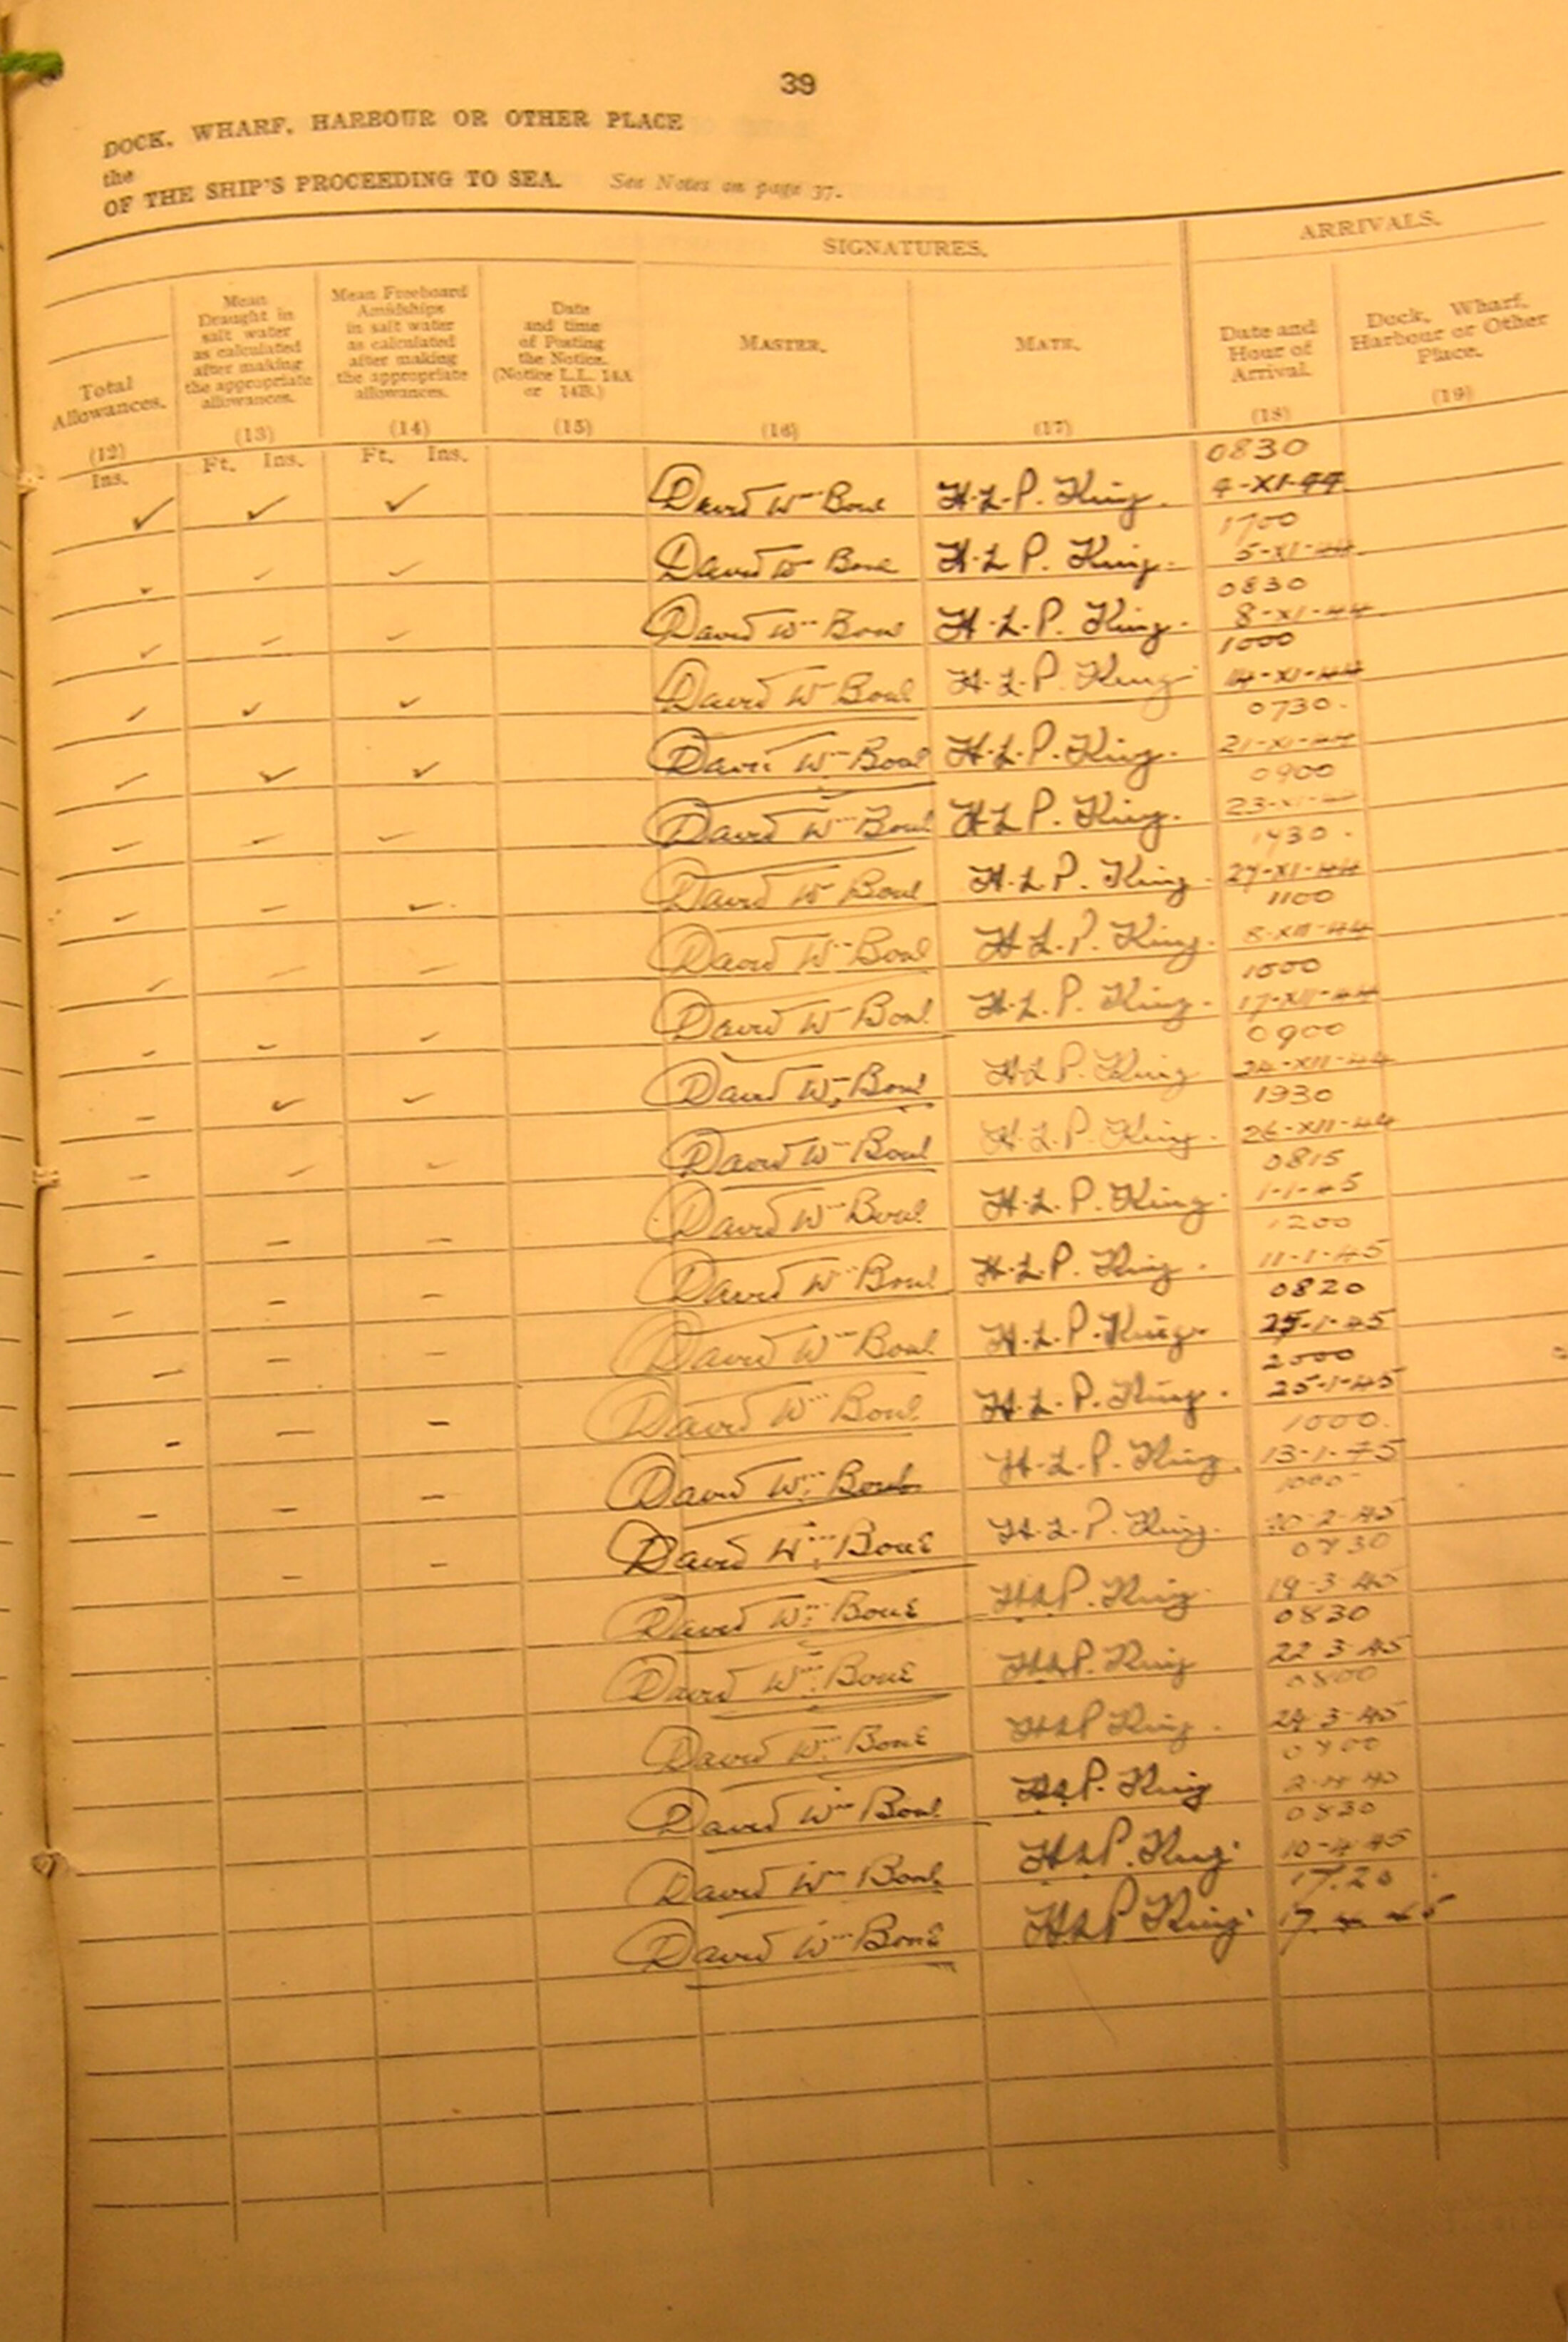 39
DOCK, WHARF, HARBOUR OR OTHER PLACE
the
OF THE SHIP'S PROCEEDING TO SEA. See Notes on page 37.
SIGNATURES. ARRIVALS.
Total Allowances. (12)
Mean Draught in salt water as calculated after making the appropriate allowances. (13)
Mean Freeboard Amidships in salt water as calculated after making the appropriate allowances. (14)
Date and time of Posting the Notice. (Notice L.L. 14A or 14B.) (15)
MASTER. (16)
MATE. (17)
Date and Hour of Arrival. (18)
Dock, Wharf, Harbour or Other Place. (19)
Ins. Ft. Ins. Ft. Ins.
0830
✓ ✓ ✓ David Wm Bone H.L.P. King. 4-XI-44
1700
David Wm Bone H.L.P. King. 5-XI-44
0830
David Wm Bone H.L.P. King. 8-XI-44
1000
David Wm Bone H.L.P. King 14-XI-44
0730
David Wm Bone H.L.P. King. 21-XI-44
0900
David Wm Bone H.L.P. King. 23-XI-44
David Wm Bone H.L.P. King 27-XI-44
1100
David Wm Bone H.L.P. King. 8-XII-44
1000
David Wm Bone H.L.P. King. 17-XII-44
0900
David Wm Bone H.L.P. King 24-XII-44
1930
David Wm Bone H.L.P. King. 26-XII-44
0815
David Wm Bone H.L.P. King. 1-1-45
1200
David Wm Bone H.L.P. King. 11-1-45
0820
David Wm Bone H.L.P. King. 25-1-45
2000
David Wm Bone H.L.P. King. 25-1-45
1000.
David Wm Bone H.L.P. King.
1000
David Wm Bone H.L.P. King. 2-45
David Wm Bone H.L.P. King. 19-3-45
0830
David Wm Bone H.L.P. King 22-3-45
0800
David Wm Bone H.L.P. King. 24-3-45
David Wm Bone H.L.P. King
0830
David Wm Bone H.L.P. King. 10-4-45
17.20
David Wm Bone H.L.P. King. 17-4-45